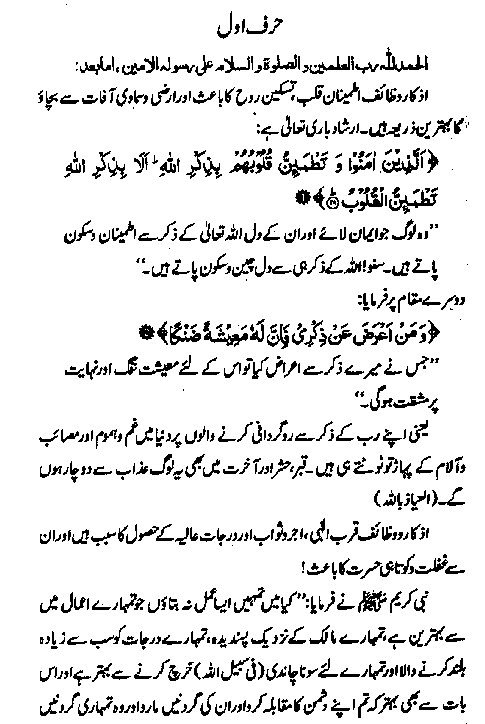 حرف اول
الحمد للّٰه رب العلمين والصلوة والسلام على رسوله الامين، اما بعد:
اذکار و وظائف اطمینان قلب، تسکین روح کا باعث اور ارضی و سماوی آفات سے بچاؤ
کا بہترین ذریعہ ہیں۔ ارشاد باری تعالیٰ ہے:
﴿اَلَّذِيْنَ اٰمَنُوْا وَ تَطْمَىِٕنُّ قُلُوْبُهُمْ بِذِكْرِ اللّٰهِ ؕ اَلَا بِذِكْرِ اللّٰهِ
تَطْمَىِٕنُّ الْقُلُوْبُ ۝۲۸﴾ ①
’’وہ لوگ جو ایمان لائے اور ان کے دل اللہ تعالیٰ کے ذکر سے اطمینان و سکون
پاتے ہیں۔ سنو! اللہ کے ذکر ہی سے دل چین و سکون پاتے ہیں۔‘‘
دوسرے مقام پر فرمایا:
﴿وَ مَنْ اَعْرَضَ عَنْ ذِكْرِيْ فَاِنَّ لَهٗ مَعِيْشَةً ضَنْكًا﴾ ②
’’جس نے میرے ذکر سے اعراض کیا تو اس کے لئے معیشت تنگ اور نہایت
پر مشقت ہوگی۔‘‘
یعنی اپنے رب کے ذکر سے روگردانی کرنے والوں پر دنیا میں غم و ہموم اور مصائب
و آلام کے پہاڑ تو ٹوٹتے ہی ہیں۔ قبر، حشر اور آخرت میں بھی یہ لوگ عذاب سے دوچار ہوں
گے۔ (العیاذ باللہ)
اذکار و وظائف قرب الٰہی، اجر و ثواب اور درجات عالیہ کے حصول کا سبب ہیں اور ان
سے غفلت و کوتاہی حسرت کا باعث!
نبی کریم ﷺ نے فرمایا: ’’کیا میں تمہیں ایسا عمل نہ بتاؤں جو تمہارے اعمال میں
سے بہترین ہے، تمہارے مالک کے نزدیک پسندیدہ، تمہارے درجات کو سب سے زیادہ
بلند کرنے والا اور تمہارے لئے سونا چاندی (فی سبیل اللہ) خرچ کرنے سے بہتر ہے اور اس
بات سے بھی بہتر کہ تم اپنے دشمن کا مقابلہ کرو اور ان کی گردنیں مارو اور وہ تمہاری گردنیں